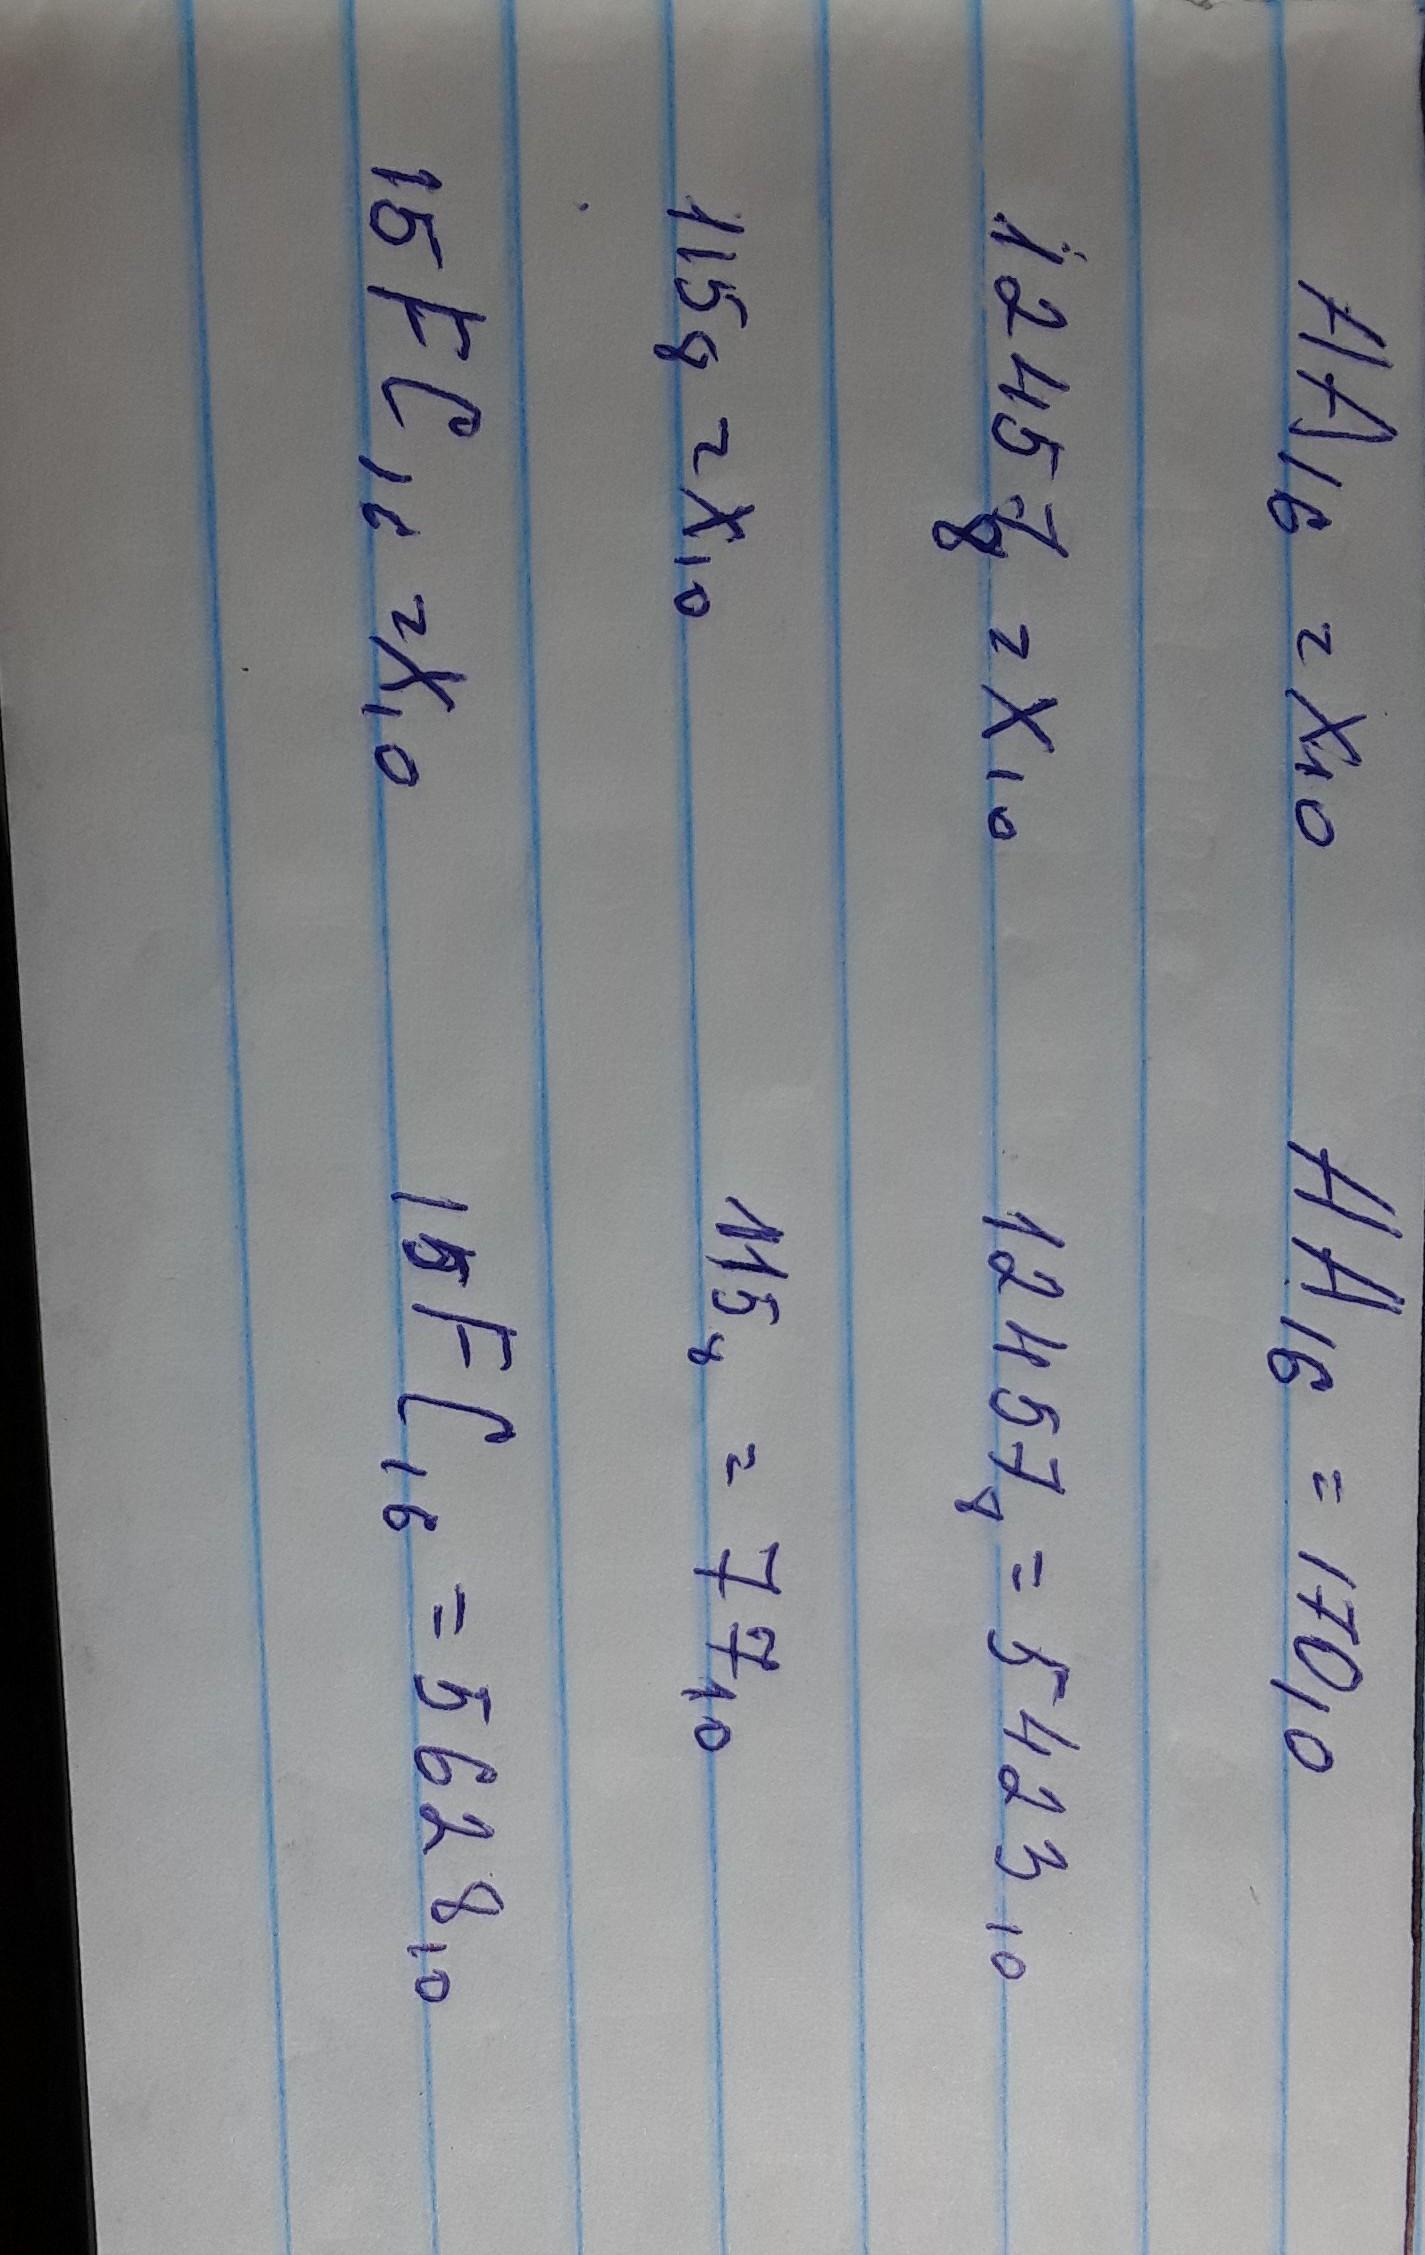 AA₁₆ = X₁₀ AA₁₆ = 170₁₀
12457₈ = X₁₀ 12457₈ = 5423₁₀
115₈ = X₁₀ 115₈ = 77₁₀
15FC₁₆ = X₁₀ 15FC₁₆ = 5628₁₀